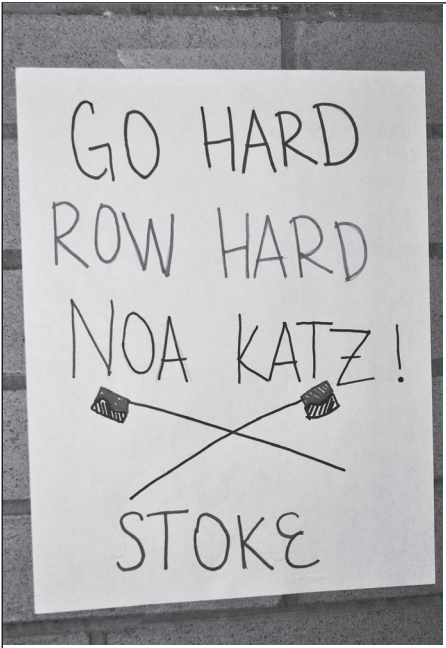 GO HARD
ROW HARD
NOA KATZ!
STOKE